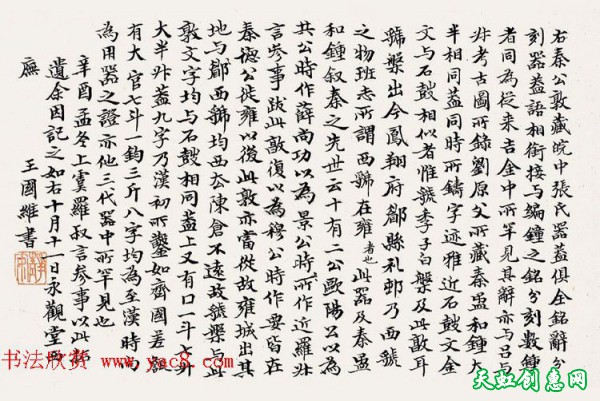 右秦公敦藏皖中張氏器蓋俱全銘辭分
刻器蓋語相銜接与編鐘之銘分刻數鐘
者同為從来吉金中所罕見其辭亦与呂与
叔考古圖所錄劉原父所藏秦盄和鐘大
半相同蓋同時所鑄字迹雅近石鼓文金
文与石鼓相似者惟虢季子白盤及此敦耳
虢盤出今鳳翔府郿縣礼邨乃西虢
之物班志所謂西虢在雍者也此器及秦盄
和鐘叙秦之先世云十有二公歐陽公以為
共公時作薛尚功以為景公時所作近羅叔
言參事跋此敦復以為穆公時作要皆在
秦德公徙雍以後此敦亦當從故雍城出其
地与郿西虢均西去陳倉不遠故虢盤与此
敦文字均与石鼓相同蓋上又有口一斗七升
大半升蓋九字乃漢初所鑿如齊國差
有大官七斗一鈞三斤八字均為至漢時尚
為用器之證亦他三代器中所罕見也
辛酉孟冬上虞羅叔言參事以此拓
遺余因記之如右十月十一日永觀堂西
廡
王國維書
书法欣赏 www.yac8.com
天虹创意网